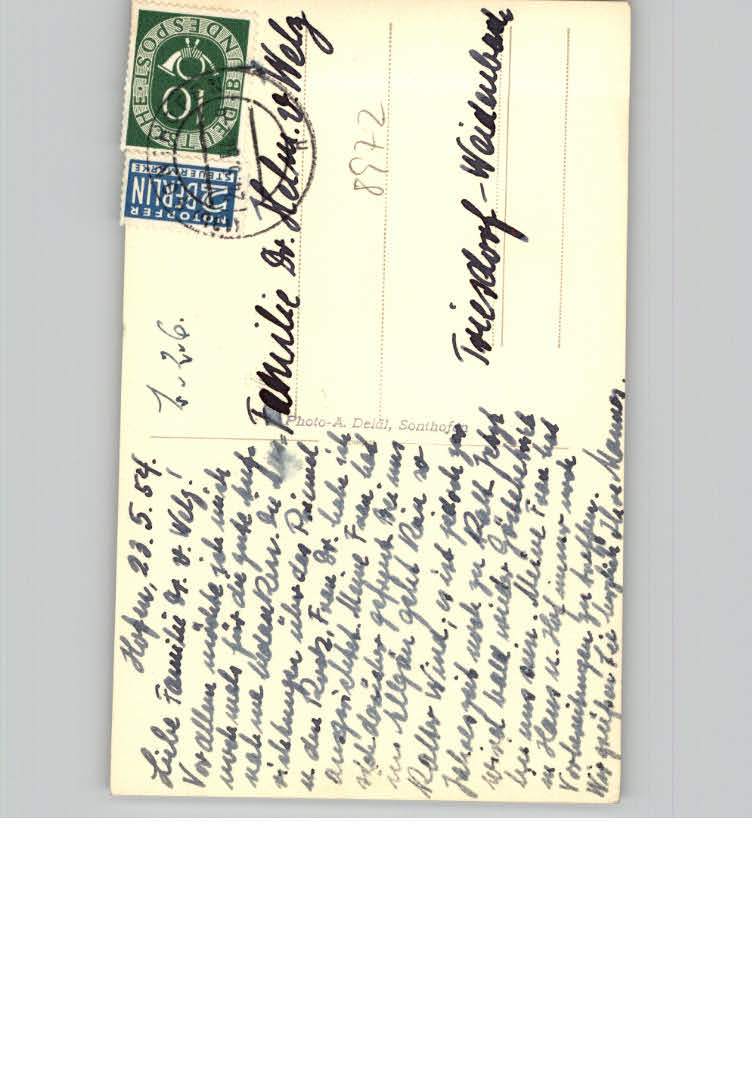 Hofen, 23.5.54.
Liebe Familie Dr. v. Welz!
Vor allem möchte ich mich
nochmals für die gute Auf-
nahme bedanken. Die
richtungen über das Rosinel
u. den Benz, Frau Dr. habe ich
ausgerichtet. Meine Frau hat
sich darüber gefreut. Bei uns
im Allgäu geht kein so
Kalter Wind, es ist jedoch zur
Jahreszeit noch zu Kalt. Jetzt
wird bald wieder
bei uns sein. Meine Frau hat
in Haus u. Hof immer noch
Vorbereitungen zu treffen.
Wir grüßen Sie herzlich Ihre
Photo-A. Deidl, Sonthofen
Z. 2. 6.
Familie Dr. Helm. v. Welz
8972
Triesdorf-Weidenbach
DEUTSCHE BUNDESPOST
10
NOTOPFER
2 BERLIN
STEUERMARKE